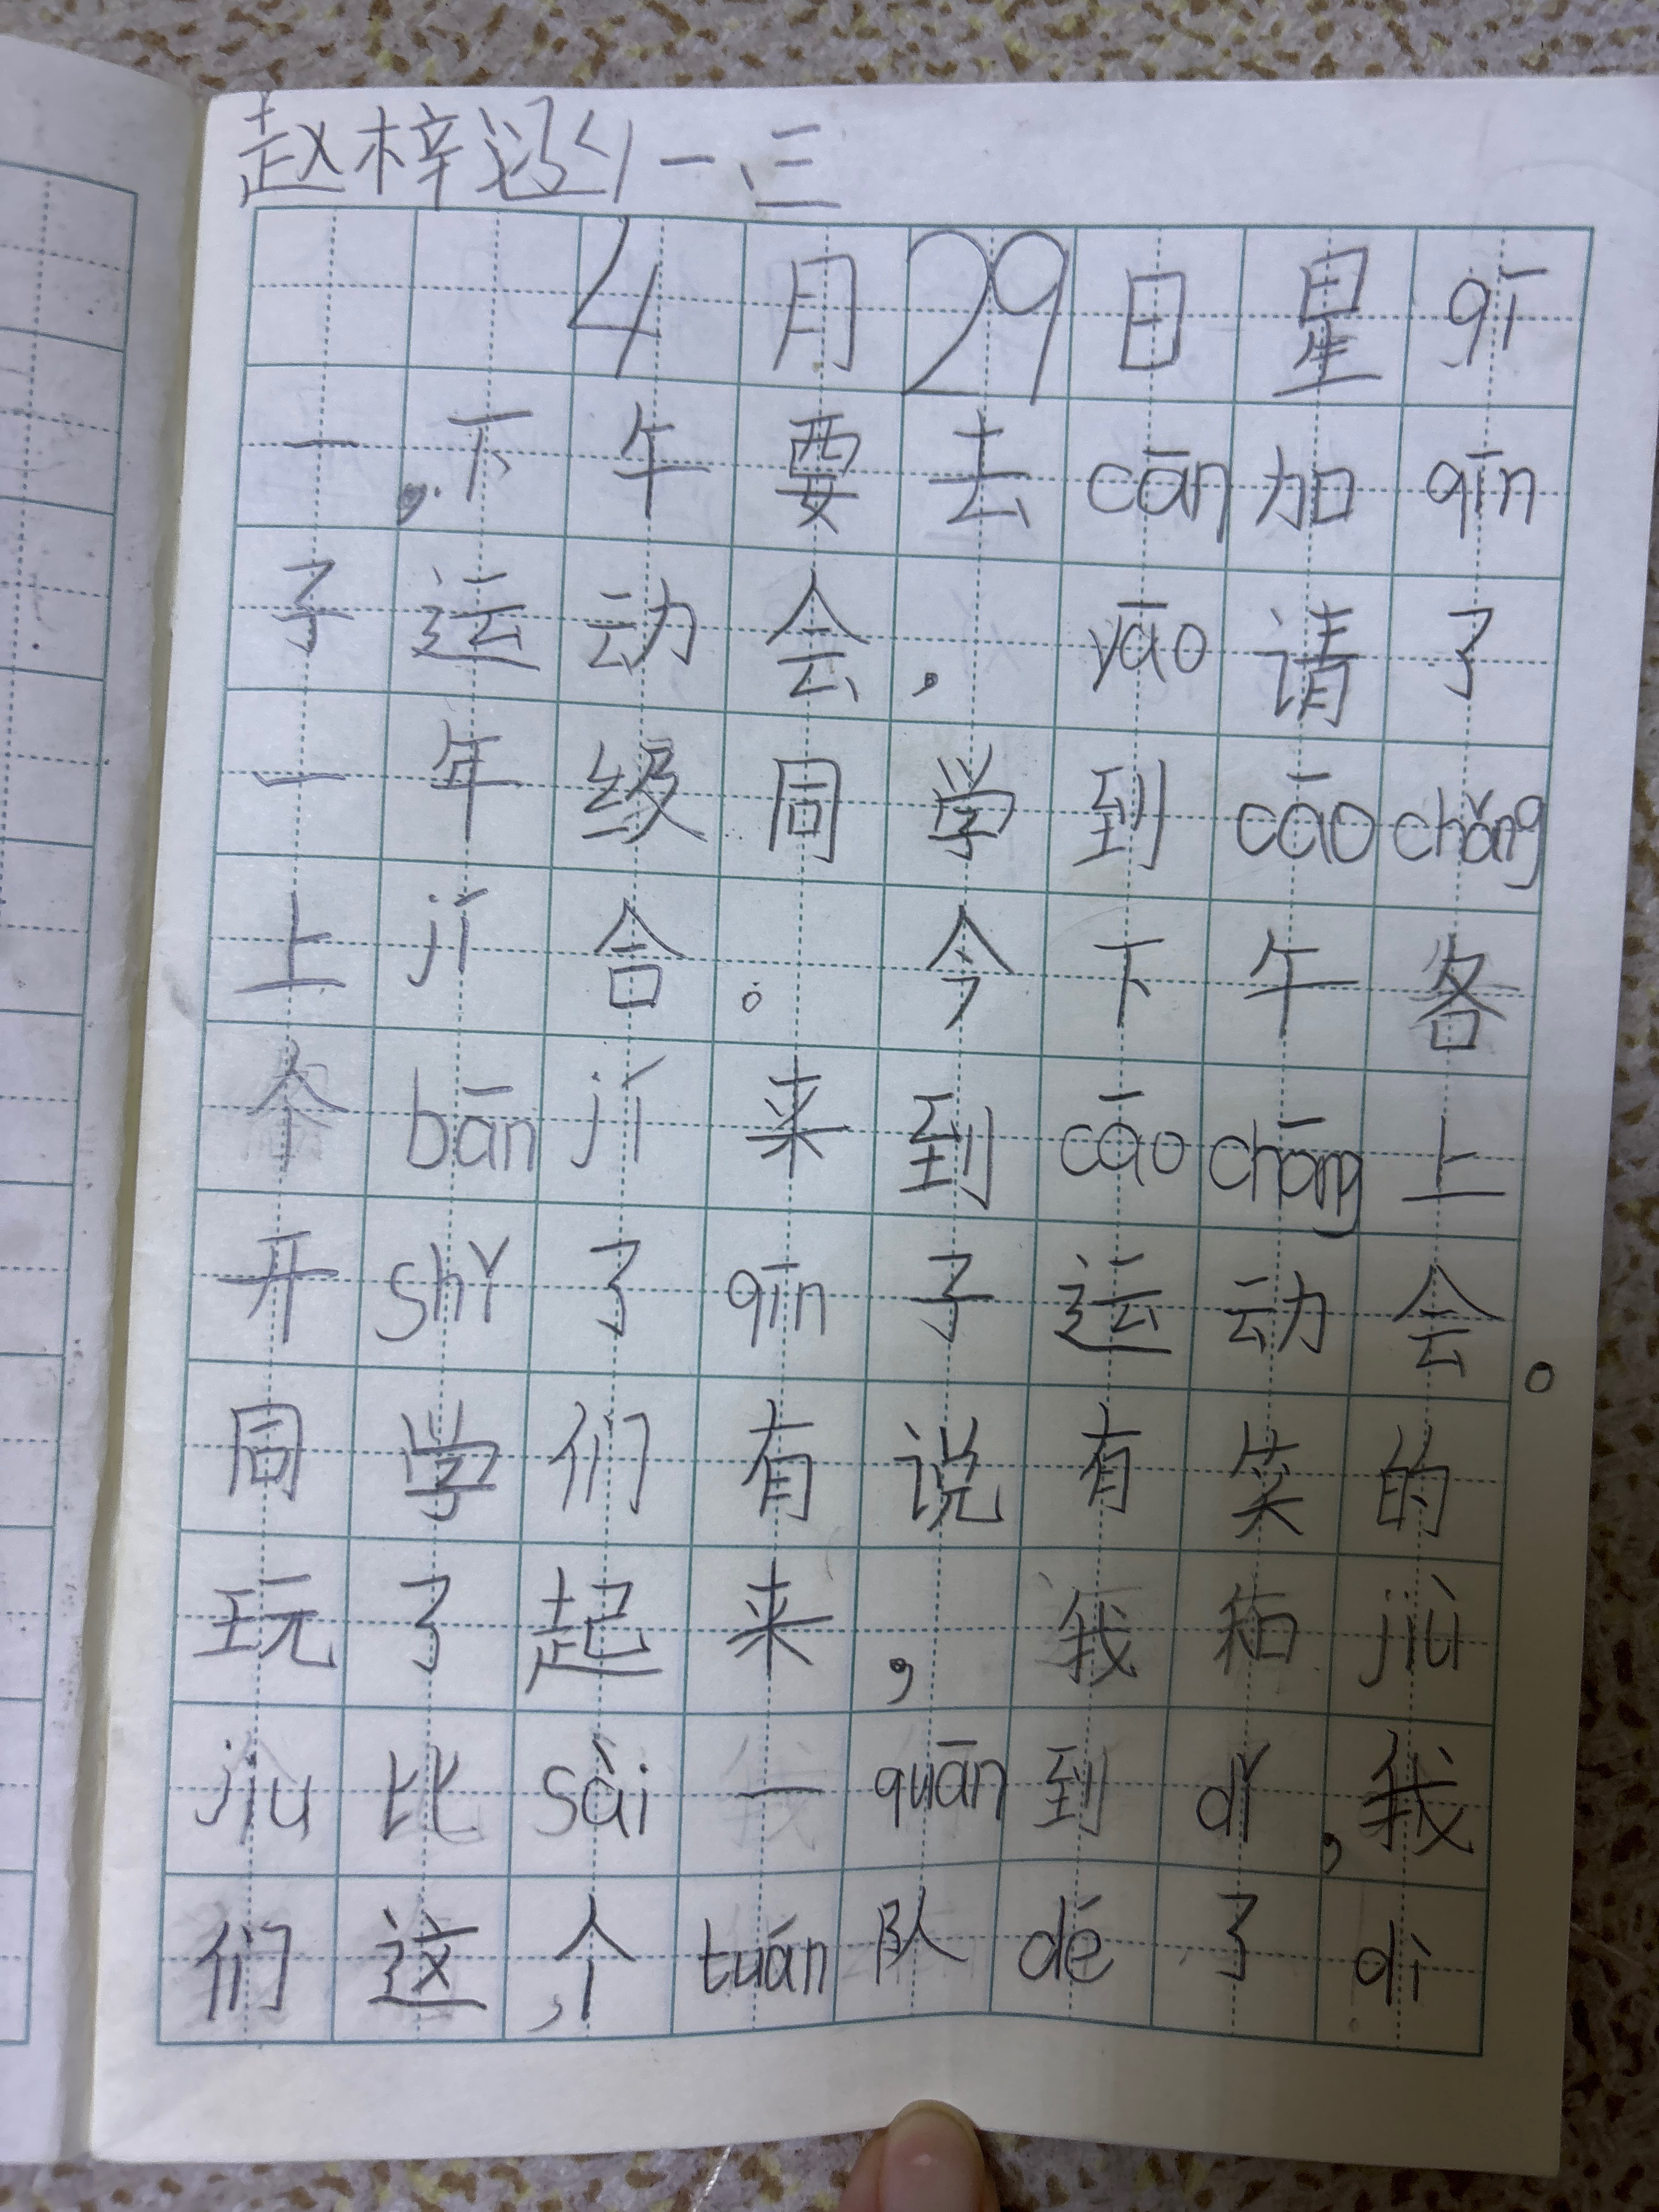 赵梓 一、三
4月29日星qī
一。下午要去cān加qīn
子运动会，yāo请了
一年级同学到cāochǎng
上jí合。今下午各
个bānjí来到cāochāng上
开shǐ了qīn子运动会。
同学们有说有笑的
玩了起来，我和jiù
jiu比sài一quān到dǐ，我
们这，个tuán队dé了di